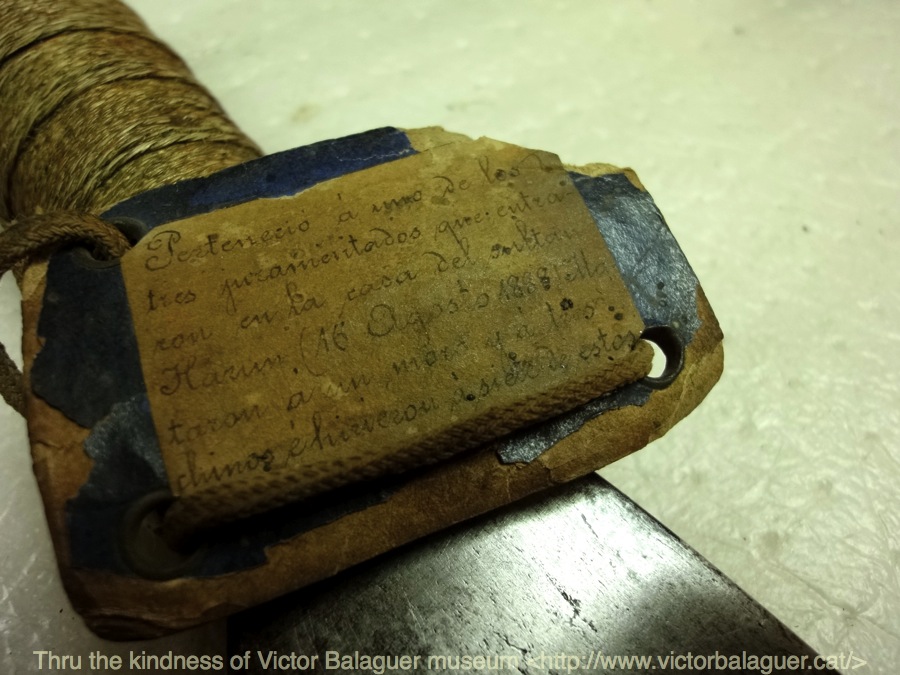 Perteneció á uno de los
tres juramentados que entra
ron en la casa del sultan
Harun (16 Agosto 1888) Ma
taron á un moro y á tres
chinos é hirieron á siete de estos
Thru the kindness of Victor Balaguer museum <http://www.victorbalaguer.cat/>